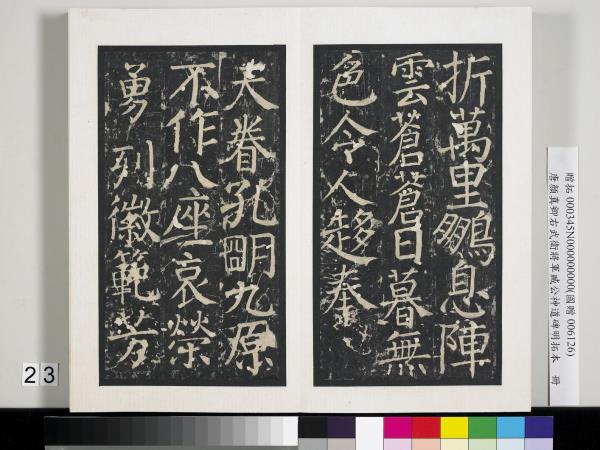 折萬里鵬息陣
雲蒼蒼日暮無
色令人趍奏
天眷孔明九原
不作八座哀榮
勇列徽範芳
贈拓 000345N000000000(國贈 006126)
唐顏真卿右武衛將軍臧公神道碑明拓本 冊
23